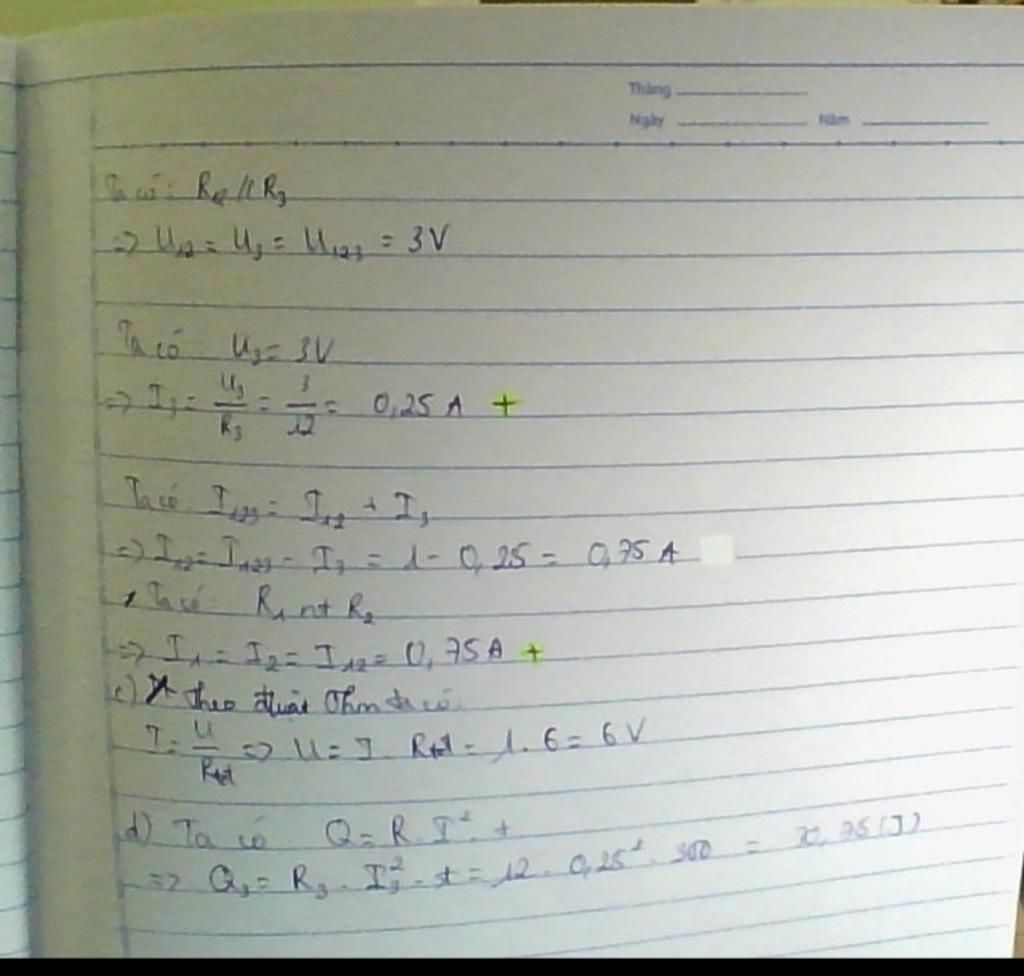 Tháng
Ngày Năm
Ta có: R₁₂ // R₃
=> U₁₂ = U₃ = U₁₂₃ = 3V
Ta có U₃ = 3V
=> I₃ = U₃/R₃ = 3/12 = 0,25 A +
Ta có I₁₂₃ = I₁₂ + I₃
=> I₁₂ = I₁₂₃ - I₃ = 1 - 0,25 = 0,75 A
Ta có R₁ nt R₂
=> I₁ = I₂ = I₁₂ = 0,75A +
c) theo Ohm ta có
I = U/Rtđ => U = I . Rtđ = 1 . 6 = 6 V
d) Ta có Q = R . I² . t
=> Q₃ = R₃ . I₃² . t = 12 . 0,25² . =